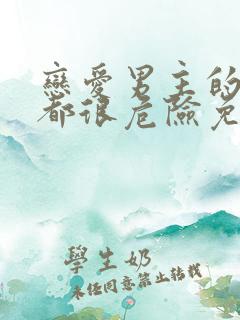 戀愛男主的
都很危險免
學生奶
未经同意禁止转载